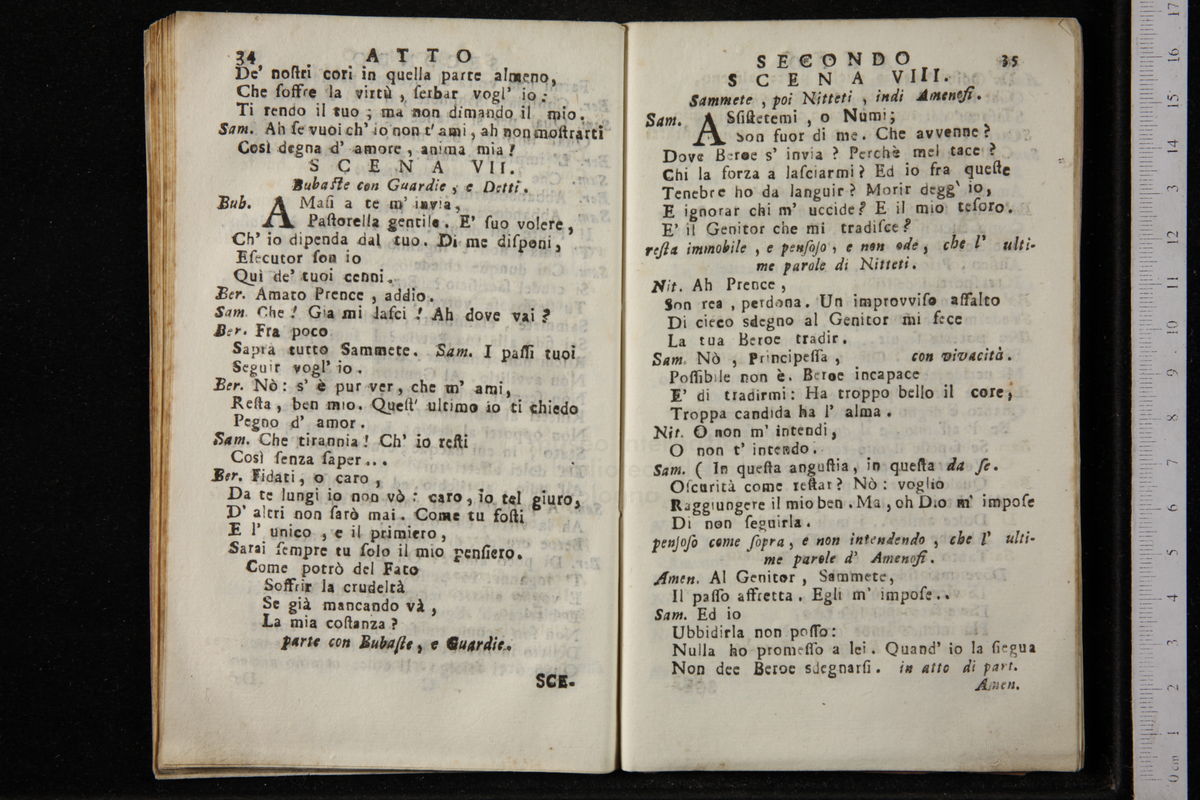 34 ATTO
De' noſtri cori in quella parte almeno,
Che ſoffre la virtù, ſerbar vogl' io:
Ti rendo il tuo; ma non dimando il mio.
Sam. Ah ſe vuoi ch' io non t' ami, ah non moſtrarti
Così degna d' amore, anima mia!
SCENA VII.
Bubaſte con Guardie, e Detti.
Bub. AMaſi a te m' invia,
Paſtorella gentile. E' ſuo volere,
Ch' io dipenda dal tuo. Di me diſponi,
Eſecutor ſon io
Quì de' tuoi cenni.
Ber. Amato Prence, addio.
Sam. Che! Gia mi laſci! Ah dove vai?
Ber. Fra poco
Saprà tutto Sammete. Sam. I paſſi tuoi
Seguir vogl' io.
Ber. Nò: s' è pur ver, che m' ami,
Reſta, ben mio. Queſt' ultimo io ti chiedo
Pegno d' amor.
Sam. Che tirannia! Ch' io reſti
Così ſenza ſaper...
Ber. Fidati, o caro,
Da te lungi io non vò: caro, io tel giuro,
D' altri non ſarò mai. Come tu foſti
E l' unico, e il primiero,
Sarai ſempre tu ſolo il mio penſiero.
Come potrò del Fato
Soffrir la crudeltà
Se già mancando và,
La mia coſtanza?
parte con Bubaſte, e Guardie.
SCE-
SECONDO 35
SCENA VIII.
Sammete, poi Nitteti, indi Amenofi.
Sam. ASſiſtetemi, o Numi;
Son fuor di me. Che avvenne?
Dove Beroe s' invia? Perchè mel tace?
Chi la forza a laſciarmi? Ed io fra queſte
Tenebre ho da languir? Morir degg' io,
E ignorar chi m' uccide? E il mio teſoro.
E' il Genitor che mi tradiſce?
reſta immobile, e penſoſo, e non ode, che l' ulti-
me parole di Nitteti.
Nit. Ah Prence,
Son rea, perdona. Un improvviſo aſſalto
Di cieco sdegno al Genitor mi fece
La tua Beroe tradir.
Sam. Nò, Principeſſa, con vivacità.
Poſſibile non è. Beroe incapace
E' di tradirmi: Ha troppo bello il core,
Troppa candida ha l' alma.
Nit. O non m' intendi,
O non t' intendo.
Sam. (In queſta anguſtia, in queſta da ſe.
Oſcurità come reſtar? Nò: voglio
Raggiungere il mio ben. Ma, oh Dio m' impoſe
Di non ſeguirla.
penſoſo come ſopra, e non intendendo, che l' ulti-
me parole d' Amenofi.
Amen. Al Genitor, Sammete,
Il paſſo affretta. Egli m' impoſe..
Sam. Ed io
Ubbidirla non poſſo:
Nulla ho promeſſo a lei. Quand' io la ſiegua
Non dee Beroe sdegnarſi. in atto di part.
Amen.